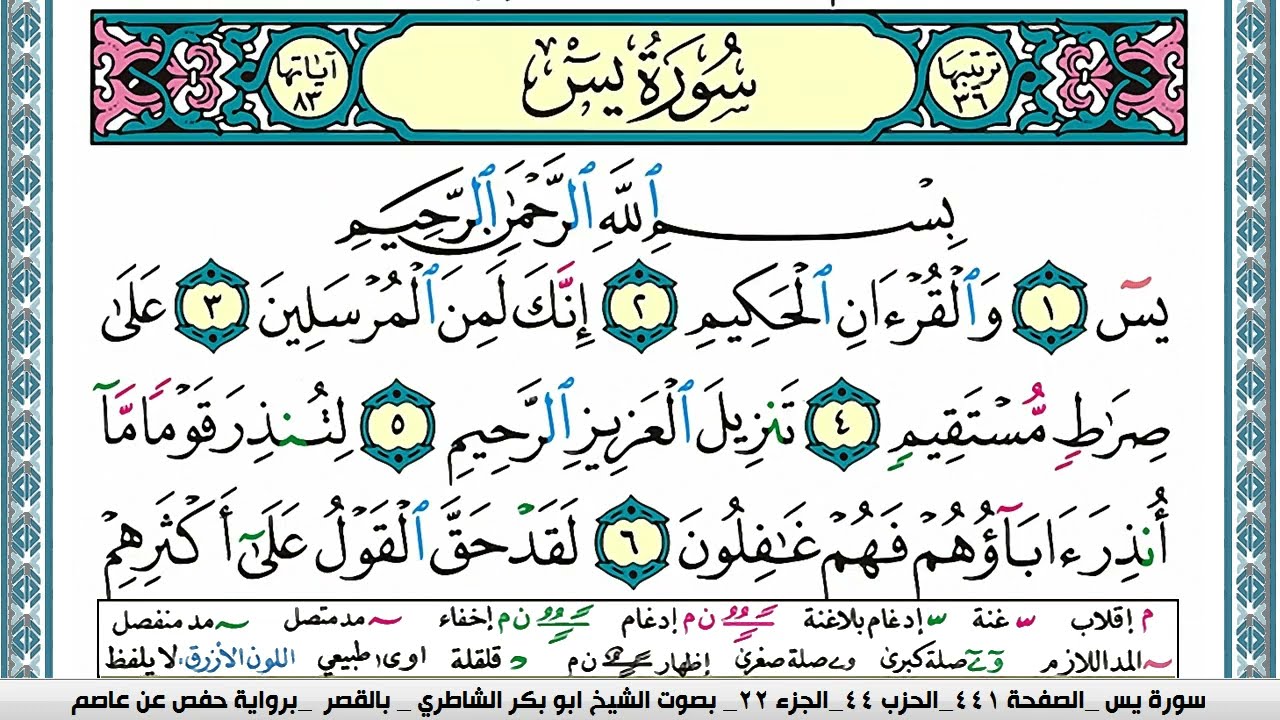 ترتيبها ٣٦
سُورَةُ يسٓ
آياتها ٨٣
بِسْمِ ٱللَّهِ ٱلرَّحْمَٰنِ ٱلرَّحِيمِ
يسٓ ١ وَٱلْقُرْءَانِ ٱلْحَكِيمِ ٢ إِنَّكَ لَمِنَ ٱلْمُرْسَلِينَ ٣ عَلَىٰ
صِرَٰطٍ مُّسْتَقِيمٍ ٤ تَنزِيلَ ٱلْعَزِيزِ ٱلرَّحِيمِ ٥ لِتُنذِرَ قَوْمًا مَّآ
أُنذِرَ ءَابَآؤُهُمْ فَهُمْ غَٰفِلُونَ ٦ لَقَدْ حَقَّ ٱلْقَوْلُ عَلَىٰٓ أَكْثَرِهِمْ
م إقلاب غنة إدغام بلاغنة ن م إدغام ن م إخفاء مد متصل مد منفصل
المد اللازم صلة كبرى و ے صلة صغرى إظهار ن م قلقلة اوى طبيعي اللون الأزرق: لا يلفظ
سورة يس _الصفحة ٤٤١_الحزب ٤٤_الجزء ٢٢_ بصوت الشيخ ابو بكر الشاطري _ بالقصر _برواية حفص عن عاصم